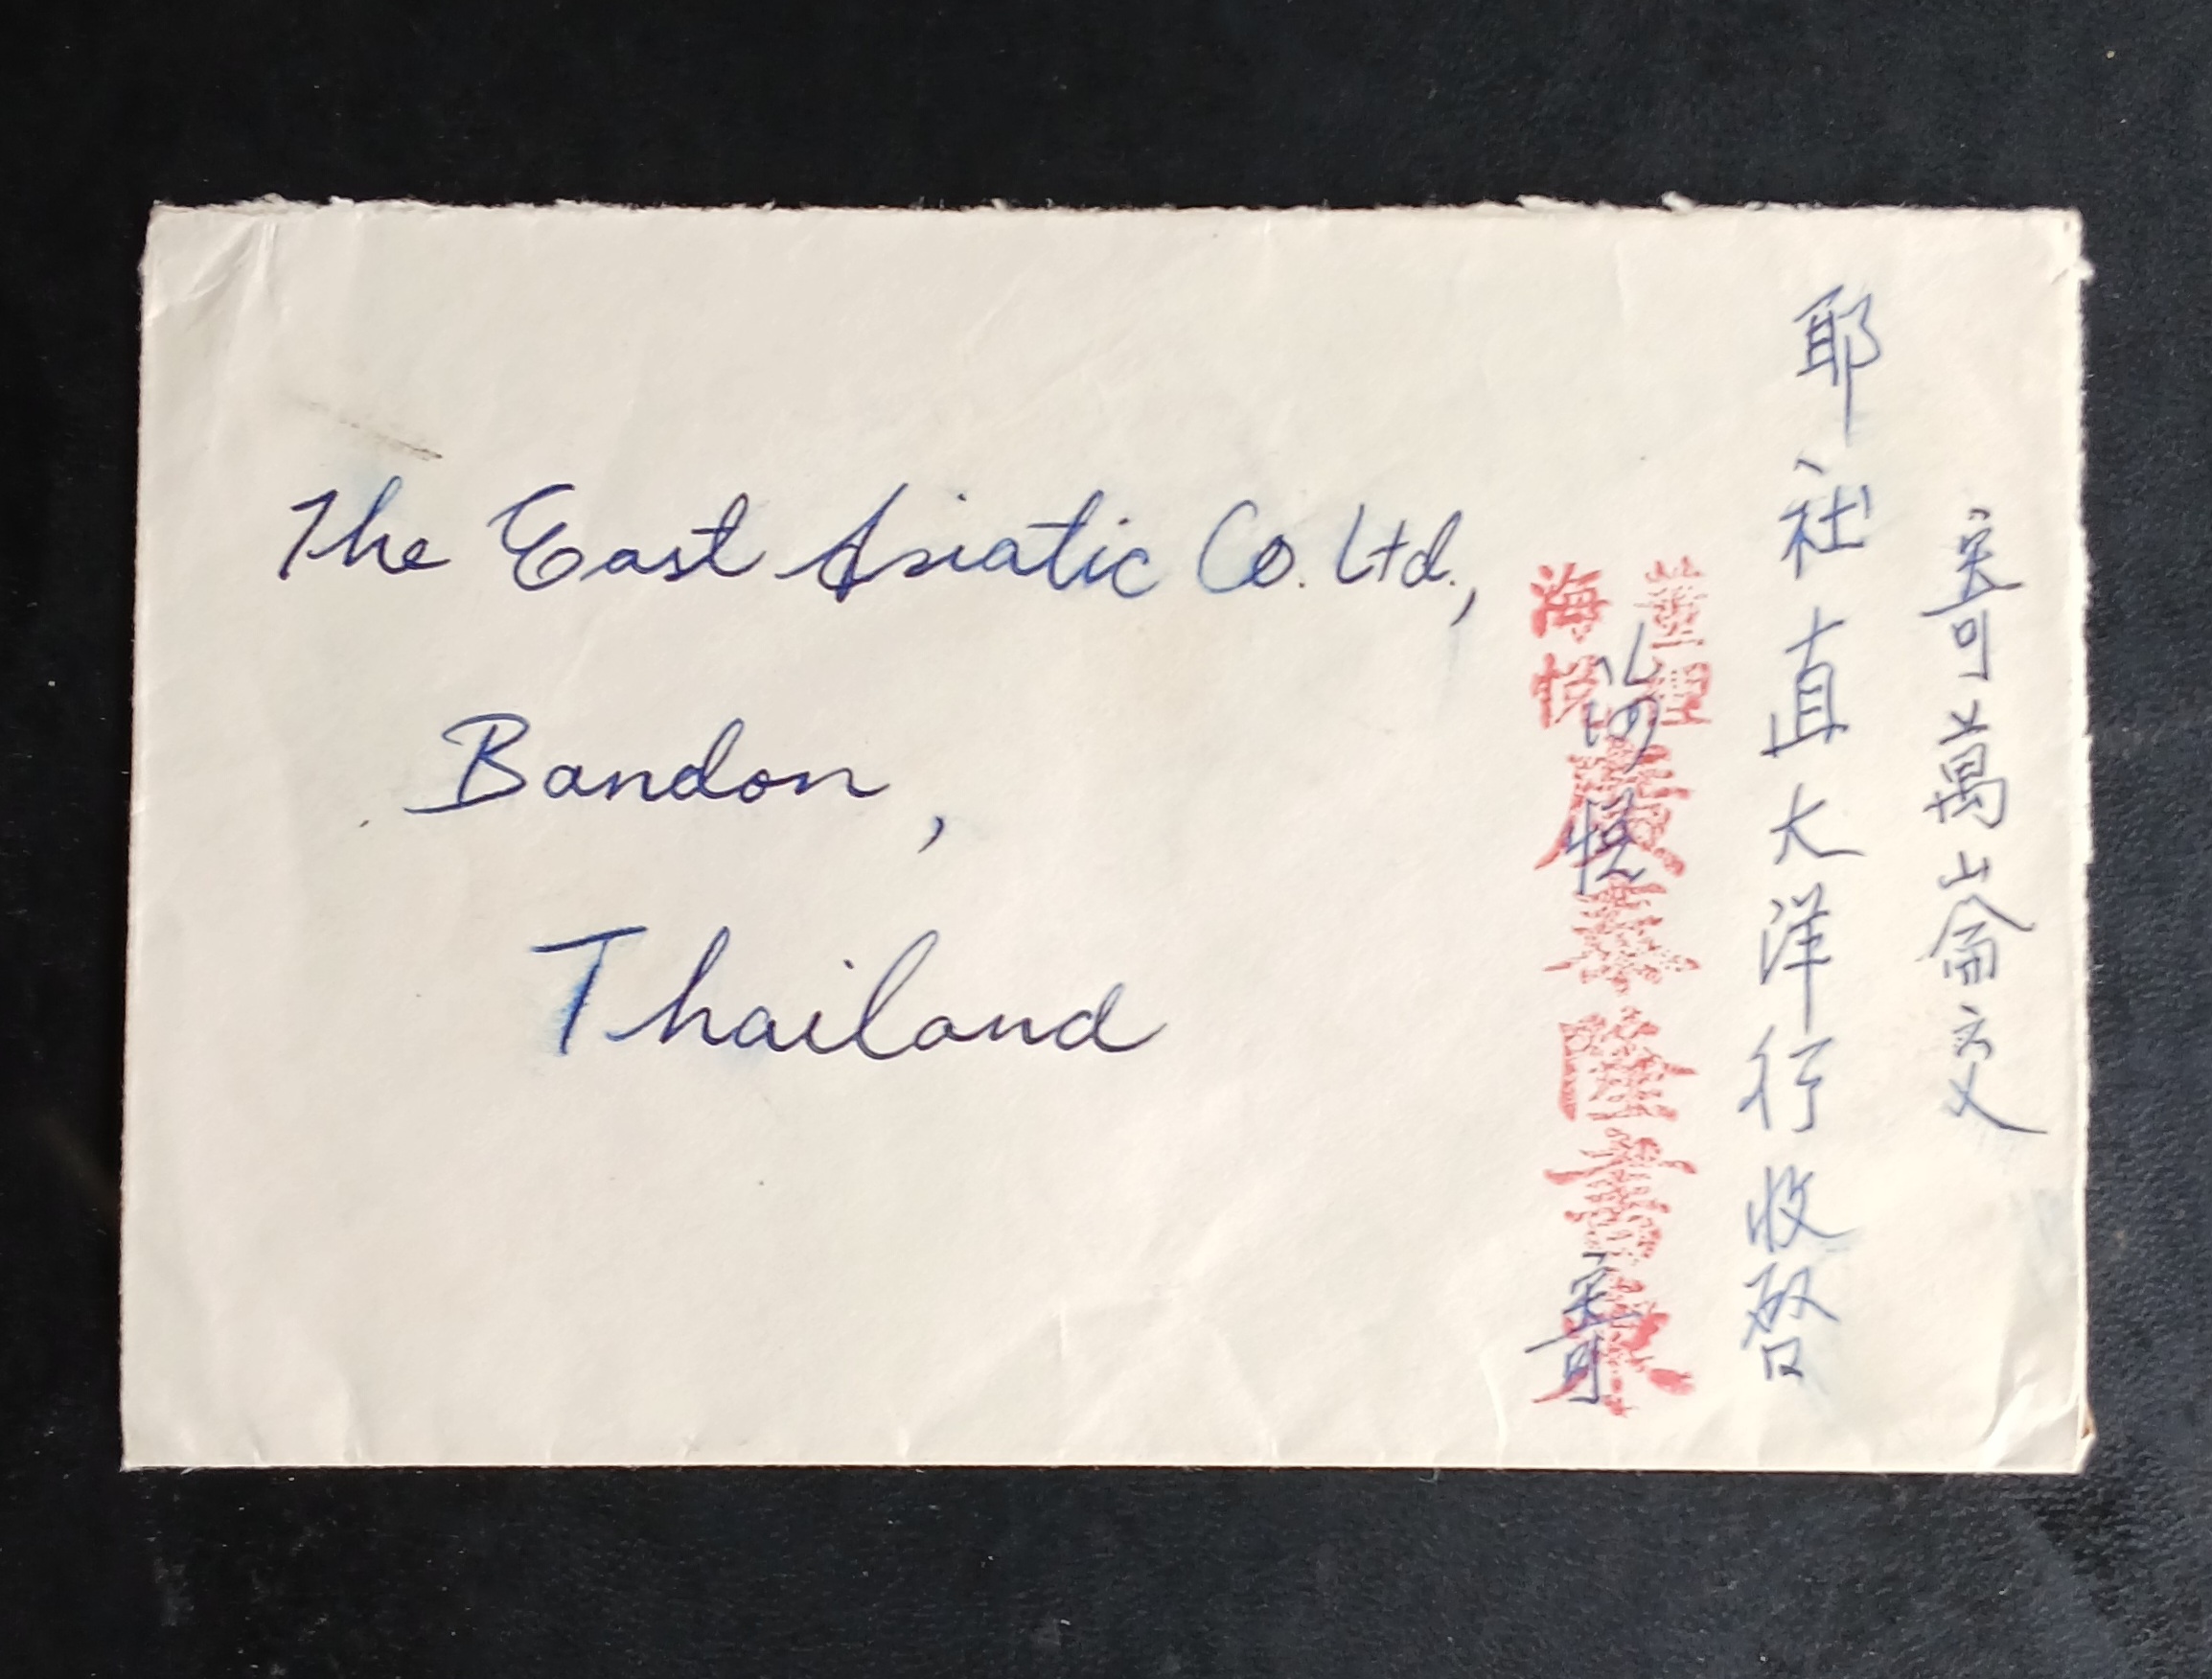 The East Asiatic Co. Ltd.,
Bandon,
Thailand
寄萬崙交
耶社直大洋行收啓
海
隆書柬
寄